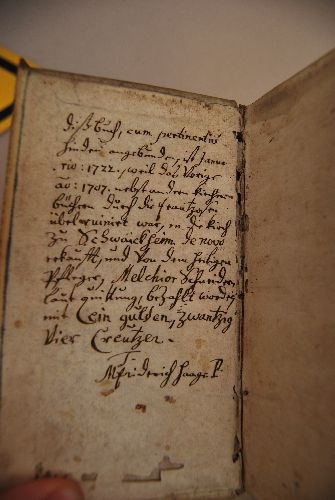 diß buch, cum pertinentiis
hinden angebunden, ist Janua-
rio: 1722. weil das Vorige
ao: 1707. nebst andern kirchen
büchern durch die frantzosen
übel ruinirt war, in die kirch
zu Schwaickheim de novo
erkaufft, und von dem heiligen
Pfleger, Melchior Schneidern,
laut quittung, bezahlt worden
mit Ein gulden, zwantzig
Vier Creutzer.
M Friderich Haage P.